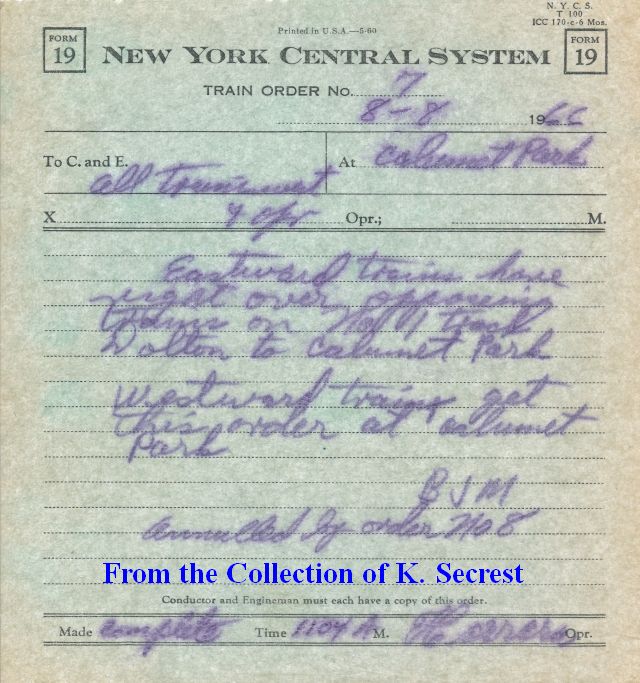 N. Y. C. S.
T 100
ICC 170-c-6 Mos.
Printed in U.S.A.—5-60
FORM
19
NEW YORK CENTRAL SYSTEM
FORM
19
TRAIN ORDER No. 7
8-8 1966
To C. and E. all trains west
At Calumet Park
X & opr Opr.; M.
Eastward trains have
right over opposing
trains on No 1 track
Dolton to Calumet Park
Westward trains get
this order at Calumet
Park
BJM
Annulled by order No 8
From the Collection of K. Secrest
Conductor and Engineman must each have a copy of this order.
Made complete Time 1104 A M. Opr.